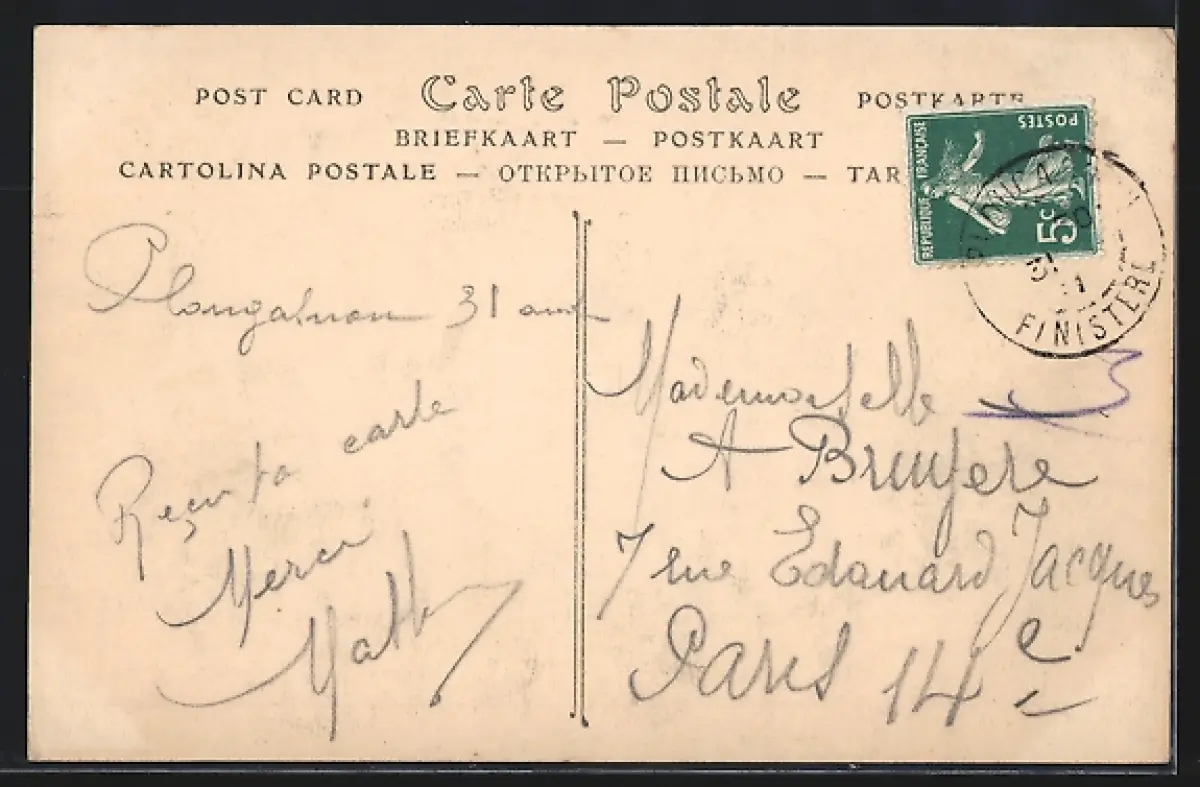 POST CARD Carte Postale POSTKARTE
BRIEFKAART — POSTKAART
CARTOLINA POSTALE — ОТКРЫТОЕ ПИСЬМО — TAR
REPUBLIQUE FRANÇAISE
POSTES
5c
31
FINISTERE
31 août
Reçu ta carte
Merci
Mademoiselle
A Bruyere
7 rue Edouard Jacques
Paris 14e